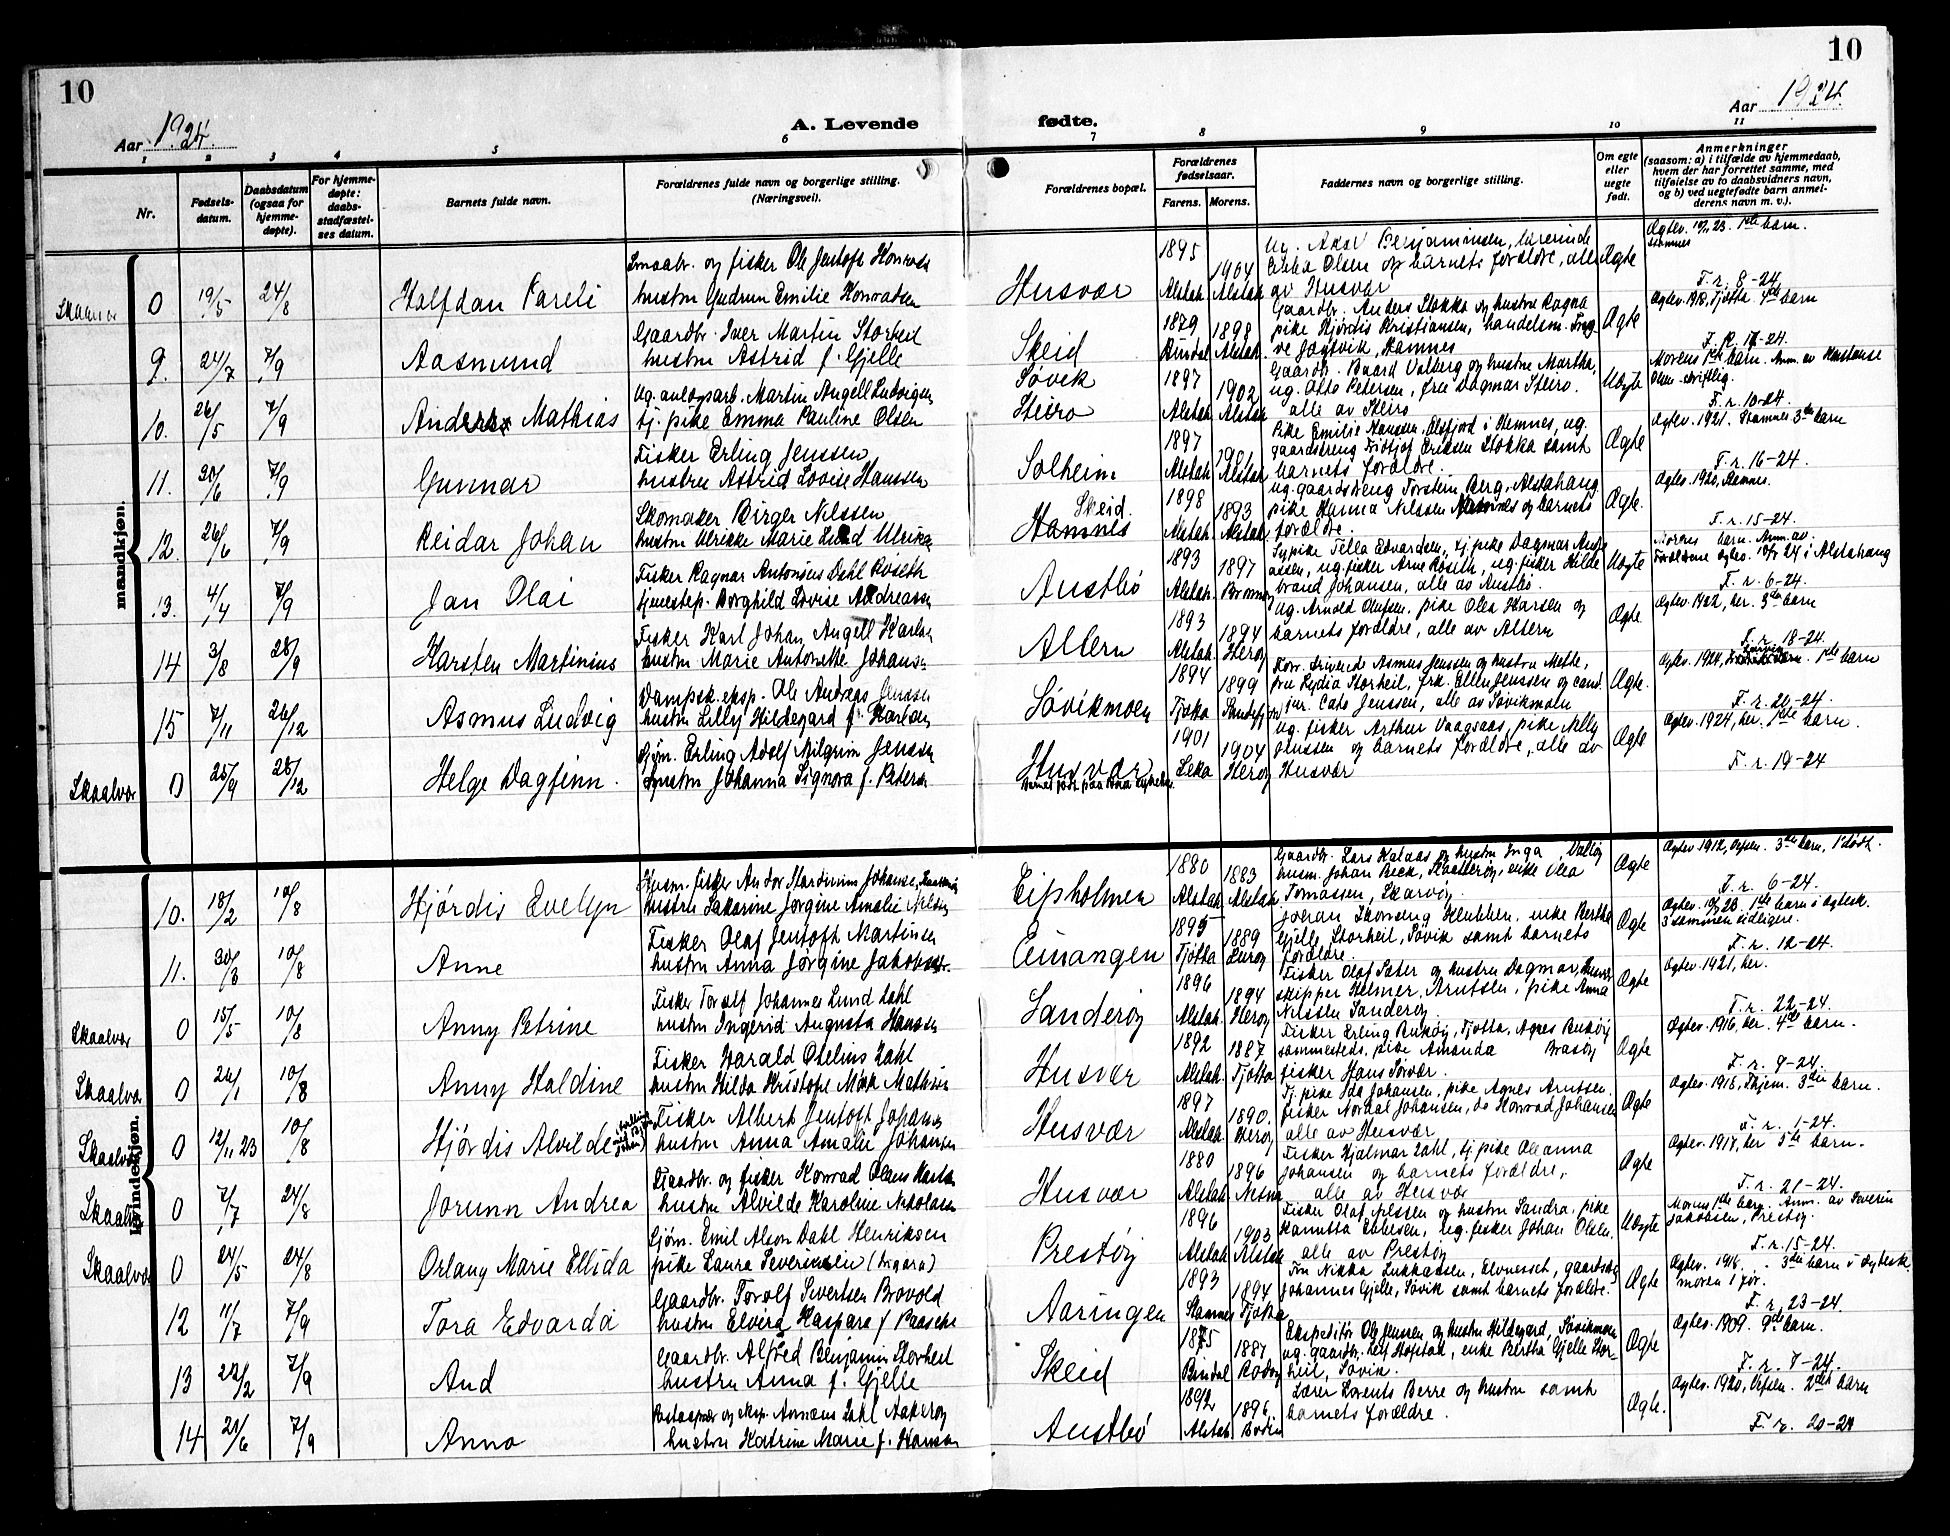 10
10
Aar 1924.
A. Levende fødte.
Aar 1924.
1 2 3 4 5 6 7 8 9 10 11
Nr.
Fødsels-
datum.
Daabsdatum
(ogsaa for
hjemme-
døpte).
For hjemme-
døpte:
daabs-
stadfæstel-
ses datum.
Barnets fulde navn.
Forældrenes fulde navn og borgerlige stilling.
(Næringsvei).
Forældrenes bopæl.
Forældrenes
fødselsaar.
Farens. Morens.
Faddernes navn og borgerlige stilling.
Om egte
eller
uegte
født.
Anmerkninger
(saasom: a) i tilfælde av hjemmedaab,
hvem der har forrettet samme, med
tilføielse av to daabsvidners navn,
og b) ved uegtefødte barn anmel-
derens navn m. v.).
mandkjøn.
0 19/5 24/8 Halfdan Kareli
Smaabr. og fisker Ole Jentoft Konradsen
hustru Gudrun Emilie Konradsen
Husvær
1895 1904
Alstah. Alstah.
Ug. Aksel Benjaminsen, lærerinde
Olsen og barnets forældre, alle
av Husvær
Ægte
Ægtev. 23. 1ste barn.
Stamnes
F. r. 8-24
9. 24/7 7/9 Aasmund
Gaardbr. Iver Martin Storheil
hustru Astrid f. Gjelle
Skeid
1879 1898
Bindal Alstah.
Gaardbr. Anders Stokka og hustru Ragna
pike Hjørdis Kristiansen, handelsm. Tryg-
ve Jøstvik, Hamnes
Ægte
Ægtev. 1918, Tjøtta. 4de barn
F. r. 17-24.
10. 26/5 7/9 Anders Mathias
Ug. anlægsarb. Martin Angell Ludvigsen
tj. pike Emma Pauline Olsen
Søvik
Steiro
1897 1902
Alstah. Alstah.
Gaardbr. Baard Valberg og hustru Martha,
ug. Otto Petersen, fru Dagmar Steiro.
alle av Steiro
Uægte
Morens 1ste barn. Anm. av Konstanse
Olsen skriftlig.
F. r. 10-24.
11. 20/6 7/9 Gunnar
Fisker Erling Jenssen
hustru Astrid Lovise Hanssen
Solheim
1897 1901
Alstah. Alstah.
Pike Emilie Hanssen, Olsfjord i Hemnes, ug.
gaardsdreng Fridtjof Eriksen Stokka samt
barnets forældre.
Ægte
Ægtev. 1921. Stamnes 3de barn
F. r. 16-24.
12. 26/6 7/9 Reidar Johan
Skomaker Birger Nilssen
hustru Ulrikke Marie Lund
Skeid.
Hamnes
1898 1893
Alstah. Alstah.
Ug. gaardsdreng Torstein Berg, Alstahaug
pike Hanna Nilssen Hamnes og barnets
forældre.
Ægte.
Ægtev. 1920, Hemnes.
F. r. 15-24.
13. 4/4 7/9 Jan Olai
Fisker Ragnar Antonius Dahl Roseth
tjenestep. Borghild Lovise Andreassen
Austbø
1893 1897
Alstah. Brønnøy
Sypike Tilla Edvardsen, tj. pike Dagmar Andre
assen, ug. fisker Arne Roseth, ug. fisker Hilde
brand Johansen, alle av Austbø.
Uægte
Morens barn. Anm. av
Forældrene ægtev. 24 i Alstahaug
F. r. 6-24.
14 3/8 28/9 Karsten Martinius
Fisker Karl Johan Angell Karlsen
hustru Marie Antonette Johans:
Altern
1893 1894
Alstah. Herøy
Ug. Arnold Olufsen, pike Olea Karsen og
barnets forældre, alle av Altern
Ægte
Ægtev. 1922, her. 3de barn
F. r. 18-24.
15 7/11 26/12 Asmus Ludvig
Dampsk. eksp. Ole Andreas Jenssen
hustru Lilly Hildegard f. Karlsen
Søvikmoen
1894 1899
Tjøtta Sandefjord
Asmus Jenssen og hustru Mette,
fru Lydia Storheil, frk. Ellen Jenssen og cand.
jur. Cato Jenssen, alle av Søvikmoen
Ægte.
Ægtev. 1924, 1ste barn
F. r. 21-24.
Skaalvær 0 25/9 28/12 Helge Dagfinn.
Gjørn. Erling Adolf Milgrim Jenssen
hustru Johanna Signora f. Peters
Husvær
1901 1904
Leka Herøy
Ug. fisker Arthur Vaagsaas, pike Nelly
Jenssen og barnets forældre, alle av
Husvær
Ægte
Ægtev. 1924, her. 1ste barn.
F. r. 19-24
kvindekjøn.
10. 18/2 10/8 Hjørdis Evelyn
Husm. fisker Andor Martinius Johanse
hustru Jakobine Jørgine Amalie Nilsen
Eipholmen
1880 1883
Alstah. Alstah
Gaardbr. Lars Kalaas og hustru Inga
husm. Johan Beck, pike Olea
Tomassen, Skarvøy
Ægte
Ægtev. 1912, Vefsn. 3de barn, 1 dødt.
F. r. 6-24.
11. 30/3 10/8 Anne
Fisker Olaf Jentoft Martinsen
hustru Anna Jørgine Jakobsdtr.
Einangen
1895 1889
Tjøtta Lurøy
Johan Skonseng, enke Bertha
Gjelle, Storheil, Søvik samt barnets
forældre.
Ægte
Ægtev. 23. 1ste barn i ægtesk.
3 sammen tidligere.
F. r. 12-24.
Skaalvær 0 15/5 10/8 Anny Petrine
Fisker Torolf Johannes Lund Dahl
hustru Ingerid Augusta Hansen
Sanderøy
1896 1894
Alstah. Herøy
Fisker Olaf Sæter og hustru Dagmar, Husvær
skipper Helmer Arntsen, pike Anna
Nilssen Sanderøy.
Ægte
Ægtev. 1921, her.
F. r. 22-24.
Skaalvær 0 26/1 10/8 Anny Haldine
Fisker Harald Otelius Dahl
hustru Hilda Kristofa Mørk Mathisen
Husvær
1892 1887
Alstah. Tjøtta
Fisker Erling Bukøy, Tjøtta, Agnes Bukøy
sammesteds, pike Amanda Brasøy
fisker Hans Torvær.
Ægte
Ægtev. 1916, her. 4de barn.
F. r. 9-24.
Skaalvær 0 12/11 23 10/8 Hjørdis Alvilde
Fisker Albert Jentoft Johansen
hustru Anna Amalie Johansen
Husvær
1897 1890.
Alstah. Herøy
Tj. pike Ida Johansen, pike Agnes Arntssen.
fisker Nordal Johansen, do Konrad Johansen
alle av Husvær
Ægte
Ægtev. 1915, hjem. 3de barn.
F. r. 1-24.
Skaalvær 0 7/7 24/8 Jorunn Andrea
Gaardbr. og fisker Konrad Olaus Karlsen
hustru Alvilde Karoline Nikolaisen
Husvær
1880 1896
Alstah. Nesna
Fisker Hjalmar Dahl, tj. pike Oleanna
Johansen og barnets forældre,
alle av Husvær
Ægte
Ægtev. 1917, her 5te barn.
F. r. 21-24.
Skaalvær 0 24/5 24/8 Orlaug Marie Ellida
Gjørn. Emil Alson Dahl Henriksen
pike Laura Severinsen (Sigara)
Prestøy
1896 1903
Alstah. Alstah
Fisker Olaf Nilssen og hustru Sandra, pike
Hanetta Ebbesen, ug. fisker Johan Olsen,
alle av Prestøy
Uægte
Morens 1ste barn. Anm. av Severin
Jakobsen, Prestøy.
F. r. 15-24.
12 11/7 7/9 Tora Edvarda
Gaardbr. Torolf Sivertsen Brovold
hustru Elvira Kaspara f. Paasche
Aaringen
1893 1894
Stamnes Tjøtta
Fru Nikka Lukkassen, Elvneset, gaardbr.
Johannes Gjelle, Søvik samt barnets forældre.
Ægte
Ægtev. 1916. 3de barn i ægtesk.
moren 1 før.
F. r. 23-24.
13 22/2 7/9 Aud
Gaardbr. Alfred Benjamin Storheil
hustru Anna f. Gjelle
Skeid
1875 1887
Bindal Rødøy
Ekspeditør Ole Jenssen og hustru Hildegard, Søvikmoen
ug. gaardbr. Leif Hofstad, enke Bertha Gjelle Stor-
heil, Søvik.
Ægte
Ægtev. 1909. 9de barn.
F. r. 7-24.
14 21/6 7/9 Anna
Postaapner og eksp. Annæus Dahl Aakerøy
hustru Katrine Marie f. Hansen
Austbø
1892 1896.
Alstah Bodin
Lærer Lorents Berre og hustru samt
barnets forældre.
Ægte.
Ægtev. 1920, Vefsn. 2det barn
F. r. 20-24